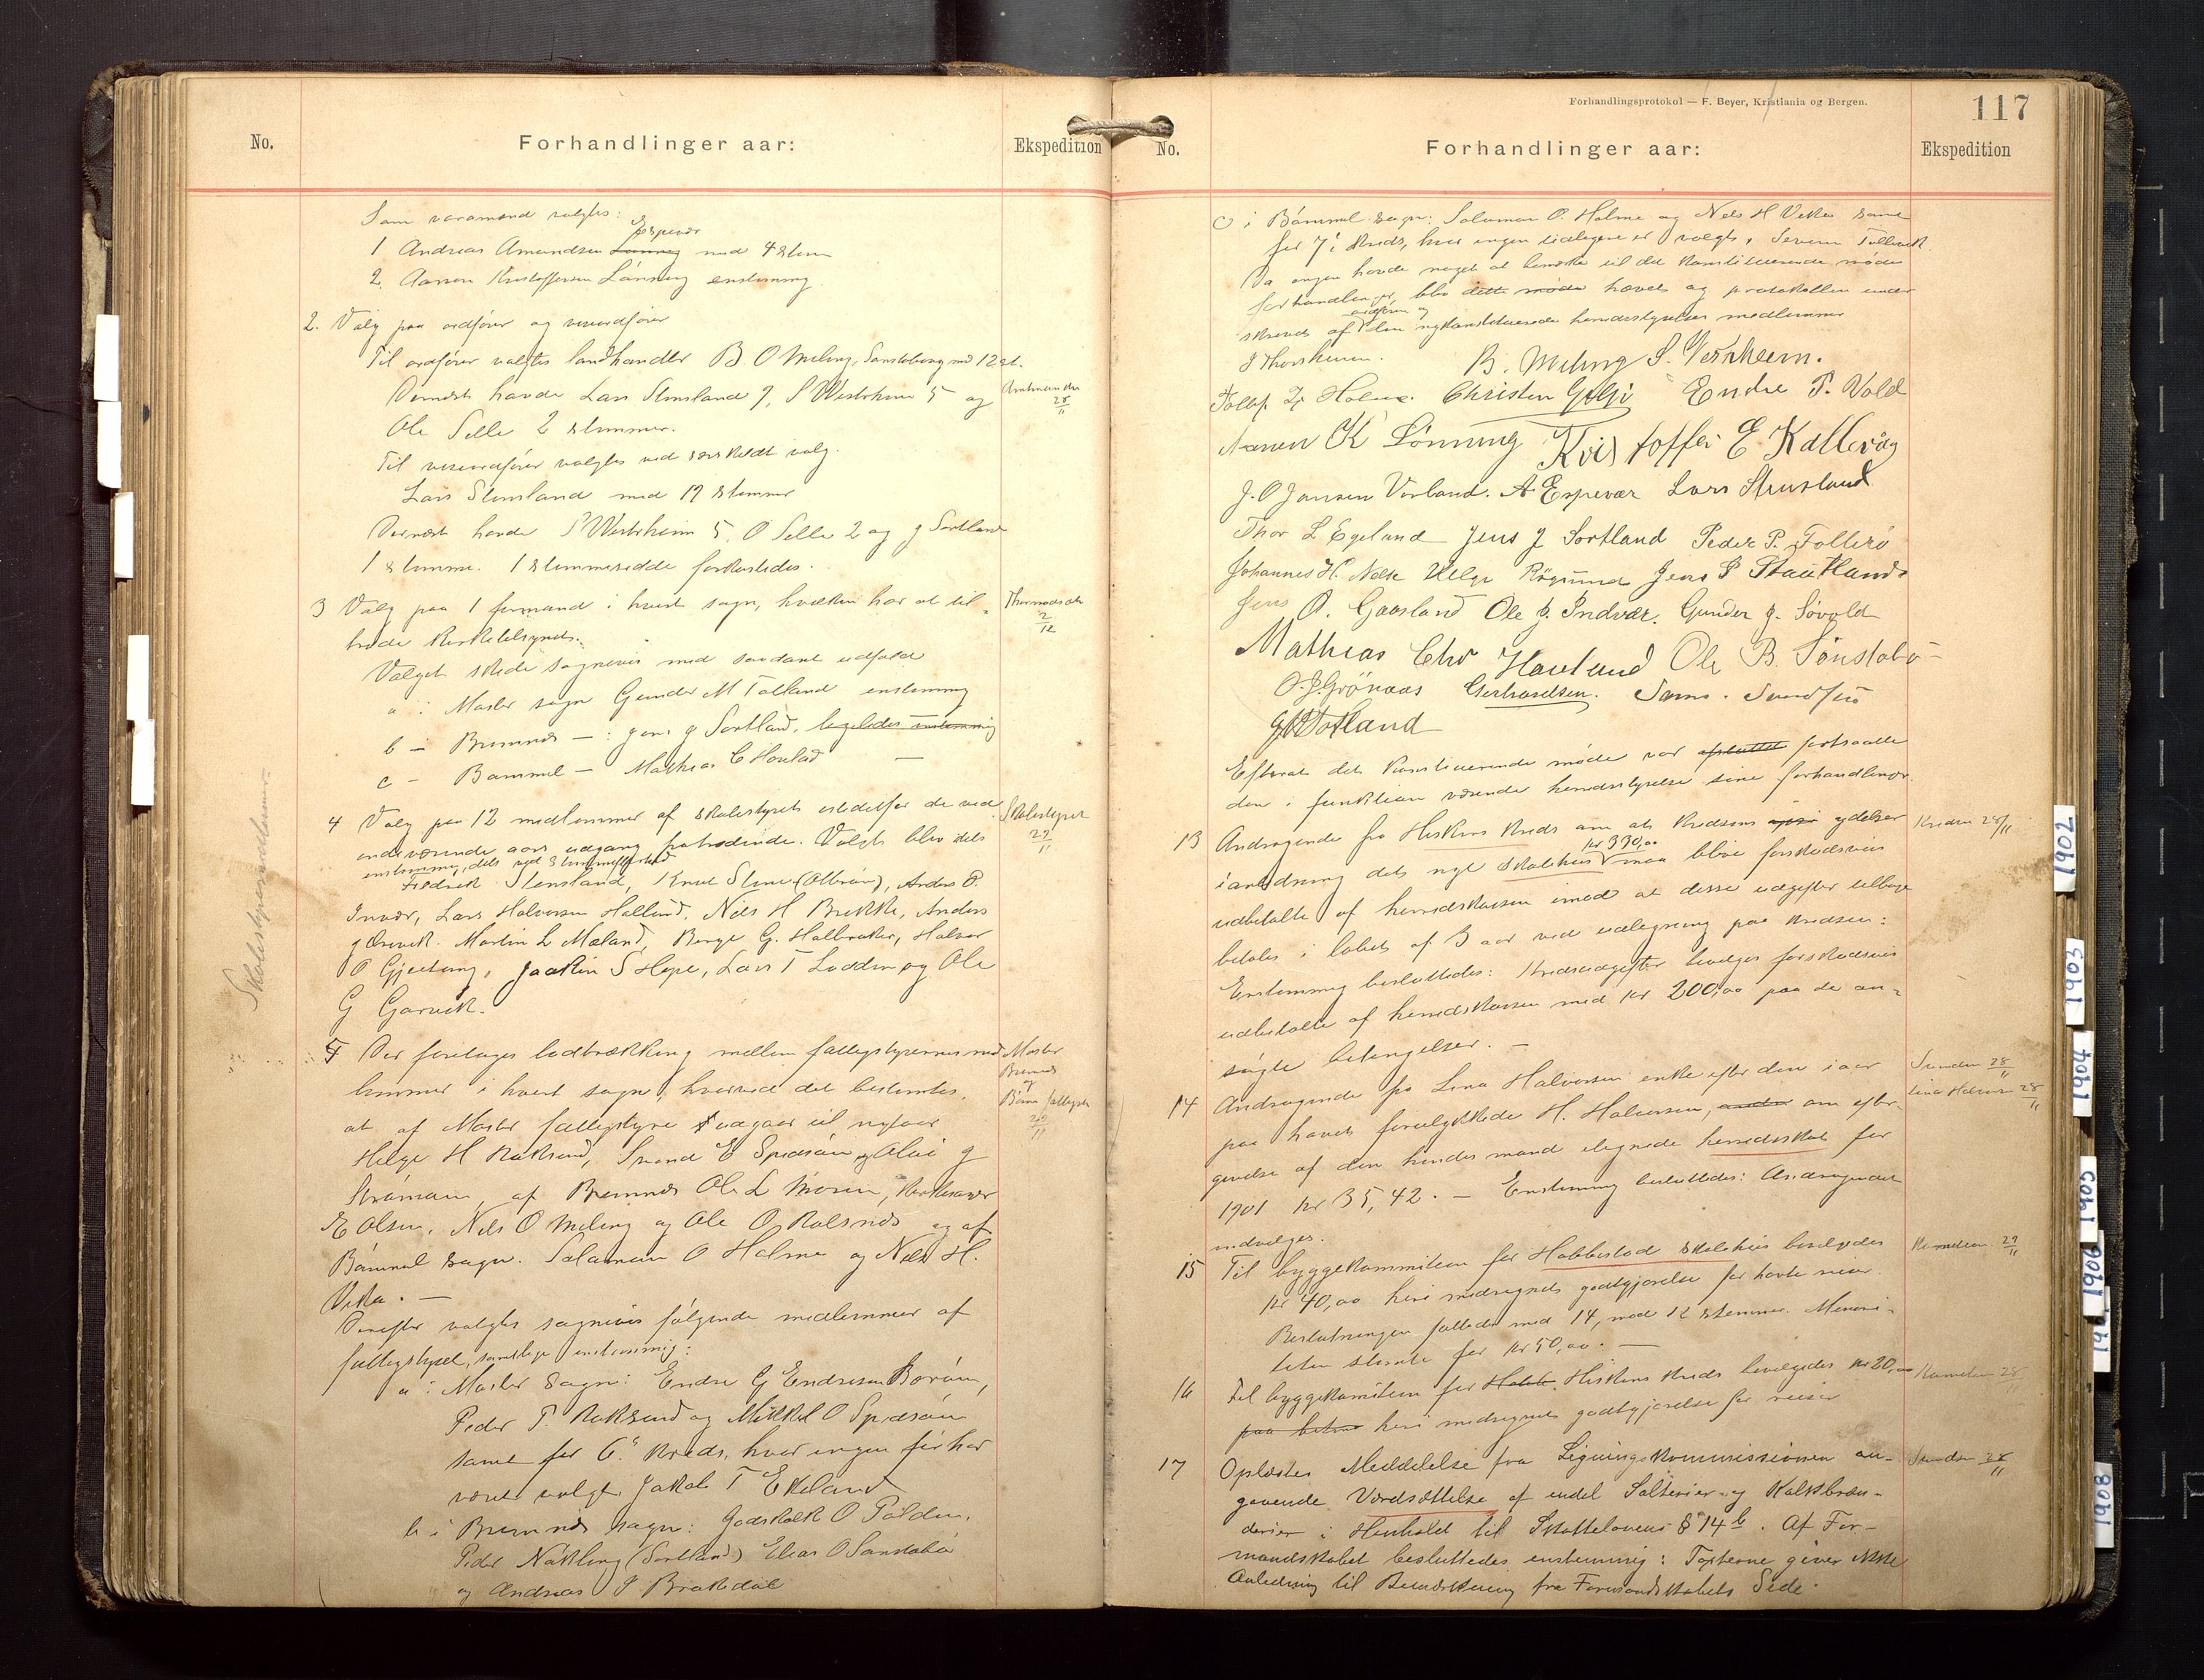 No.
Forhandlinger aar:
Ekspedition
Som varamænd valgtes:
Espevær
1 Andreas Amundsen med 4 stem
2. Aanen Kristoffersen Lønning enstemmig
2. Valg paa ordfører og viseordfører
Til ordfører valgtes landhandler B. O Meling, Sønstebø med 12 st.
Dernæst havde Lars Stensland 7, S Westerheim 5 og
Ole Selle 2 stemmer.
Til viseordfører valgtes ved særskildt valg.
Lars Stensland med 17 stemmer
Dernæst havde S Westerheim 5, O Selle 2 og J Sortland
1 stemme. 1 stemmeseddel forkastedes.
3 Valg paa 1 formand i hvert sogn, hvilken har at til-
træde kirketilsynet.
Valget skede sognevis med saadant udfald
a i Moster sogn Gunder M Totland enstemmig
b - Bremnes - : Jens J Sortland, ligeledes enstemmig
c - Bømmel - Mathias C Hovland
4 Valg paa 12 medlemmer af skolestyret istedetfor de ved
indeværende aars udgang fratrædende. Valgt blev dels
enstemmig, dels ved stemmeflerhed
Fredrik Stensland, Knut Stene, Anders P.
Indvær, Lars Halvorsen Halleland, Nils H Brekke, Anders
Martin L Mæland, Berge G. Halleraker, Halvor
O Gjeitung, Joakim S Hope, Lars T Lodden og Ole
G Garvik.
Skolestyremedlemmer
5 Der foretoges lodtrækning mellem fattigstyrernes med-
lemmer i hvert sogn, hvorved det bestemtes,
at af Moster fattigstyre udgaar til nytaar
Helge H Roksund, Svend E Spidsøen og Alai J
af Bremnes Ole L Mosen,
E Olsen, Nils O Meling og Ole O Rolsnes og af
Bømmel sogn. Salamon O Holme og Nils H.
Vika. —
Derefter valgtes sognevis følgende medlemmer af
fattigstyret, samtlige enstemmig:
a i Moster Sogn: Endre G Endresen Børøen,
Peder P. Roksund og Mikkel O Spidsøen
samt for 6te kreds, hvor ingen før har
været valgt, Jakob T Ekeland
b i Bremnes sogn: Godskalk O Polden,
Peder Nøkling (Sortland) Elias O Sønstabø
og Andreas J Brakedal
28/11
2/12
Skolestyret
29/11
Moster
Bremnes
og
Forhandlingsprotokol — F. Beyer, Kristiania og Bergen.
117
No.
Forhandlinger aar:
Ekspedition
c i Bømmel sogn: Salomon O. Holme og Nils H Vika samt
for 7de kreds, hvor ingen tidligere er valgt, Severin Tollevik.
Da ingen havde noget at bemerke til det konstituerende mødes
forhandlinger, blev dette møde hævet og protokollen under
ordføren og
skrevet af den nykonstituerede herredsstyrelses medlemmer
B. Meling S. Vestrheim.
Holme. Christen Gilje Endre T. Vold
Aanen K Lönning Kristoffer E. Kallevåg
J. O Jansen Vorland. A Espevær Lars Stensland
Thor L Egeland Jens J Sortland Peder P. Follesö
Johannes H. Nesse Helge Røksund Jens S Stautland
Jens O. Gaasland Ole J. Indvær. Gunder J. Søvold
Mathias Chr Havland Ole B. Sönstabö
O. J. Grönaas Gerhardsen.
Totland
Efterat det konstituerende møde var afsluttet fortsatte
den i funktion værende herredsstyrelse sine forhandlinger.
13 Andragende fra Hiskens kreds om at kredsens ydelser
kr 390,00
i anledning det nye skolehus maa blive forskudsvis
udbetalte af herredskassen imod at disse udgifter tilbage
betales i løbet af 3 aar ved udligning paa kredsen:
Enstemmig besluttedes: Kredsudgifter bevilges forskudsvis
udbetalte af herredskassen med kr 200,00 paa de an-
søgte betingelser. —
14 Andragende fra Lina Halvorsen enke efter den i aar
paa havet forulykkede H. Halvorsen, om efter-
givelse af den hendes mand ilignede herredsskat for
1901 kr 35,42. — Enstemmig besluttedes: Andragendet
indvilges.
15 Til byggekommiteen for Habbestad skolehus bevilgedes
kr 40,00 heri medregnet godtgjørelse for havte reiser
Beslutningen fattedes med 14, mod 12 stemmer. Minori-
teten stemte for kr 50,00. —
16 Til byggekomiteen for Hiskens kreds bevilgedes kr 20,00
heri medregnet godtgjørelse for reiser
17 Oplæstes Meddelelse fra Ligningskommissionen an-
gaaende Værdsættelse af endel Salterier og Kalkbræn-
derier i Henhold til Skattelovens § 14 b. Af For-
mandskabet besluttedes enstemmig: Taxterne giver ikke
Anledning til Bemærkning fra Formandskabets Side.
Kredsen 28/11
28/11
Lina Halvorsen 28/11
29/11
28/11
1902
1903
1904
1905
1906
1908